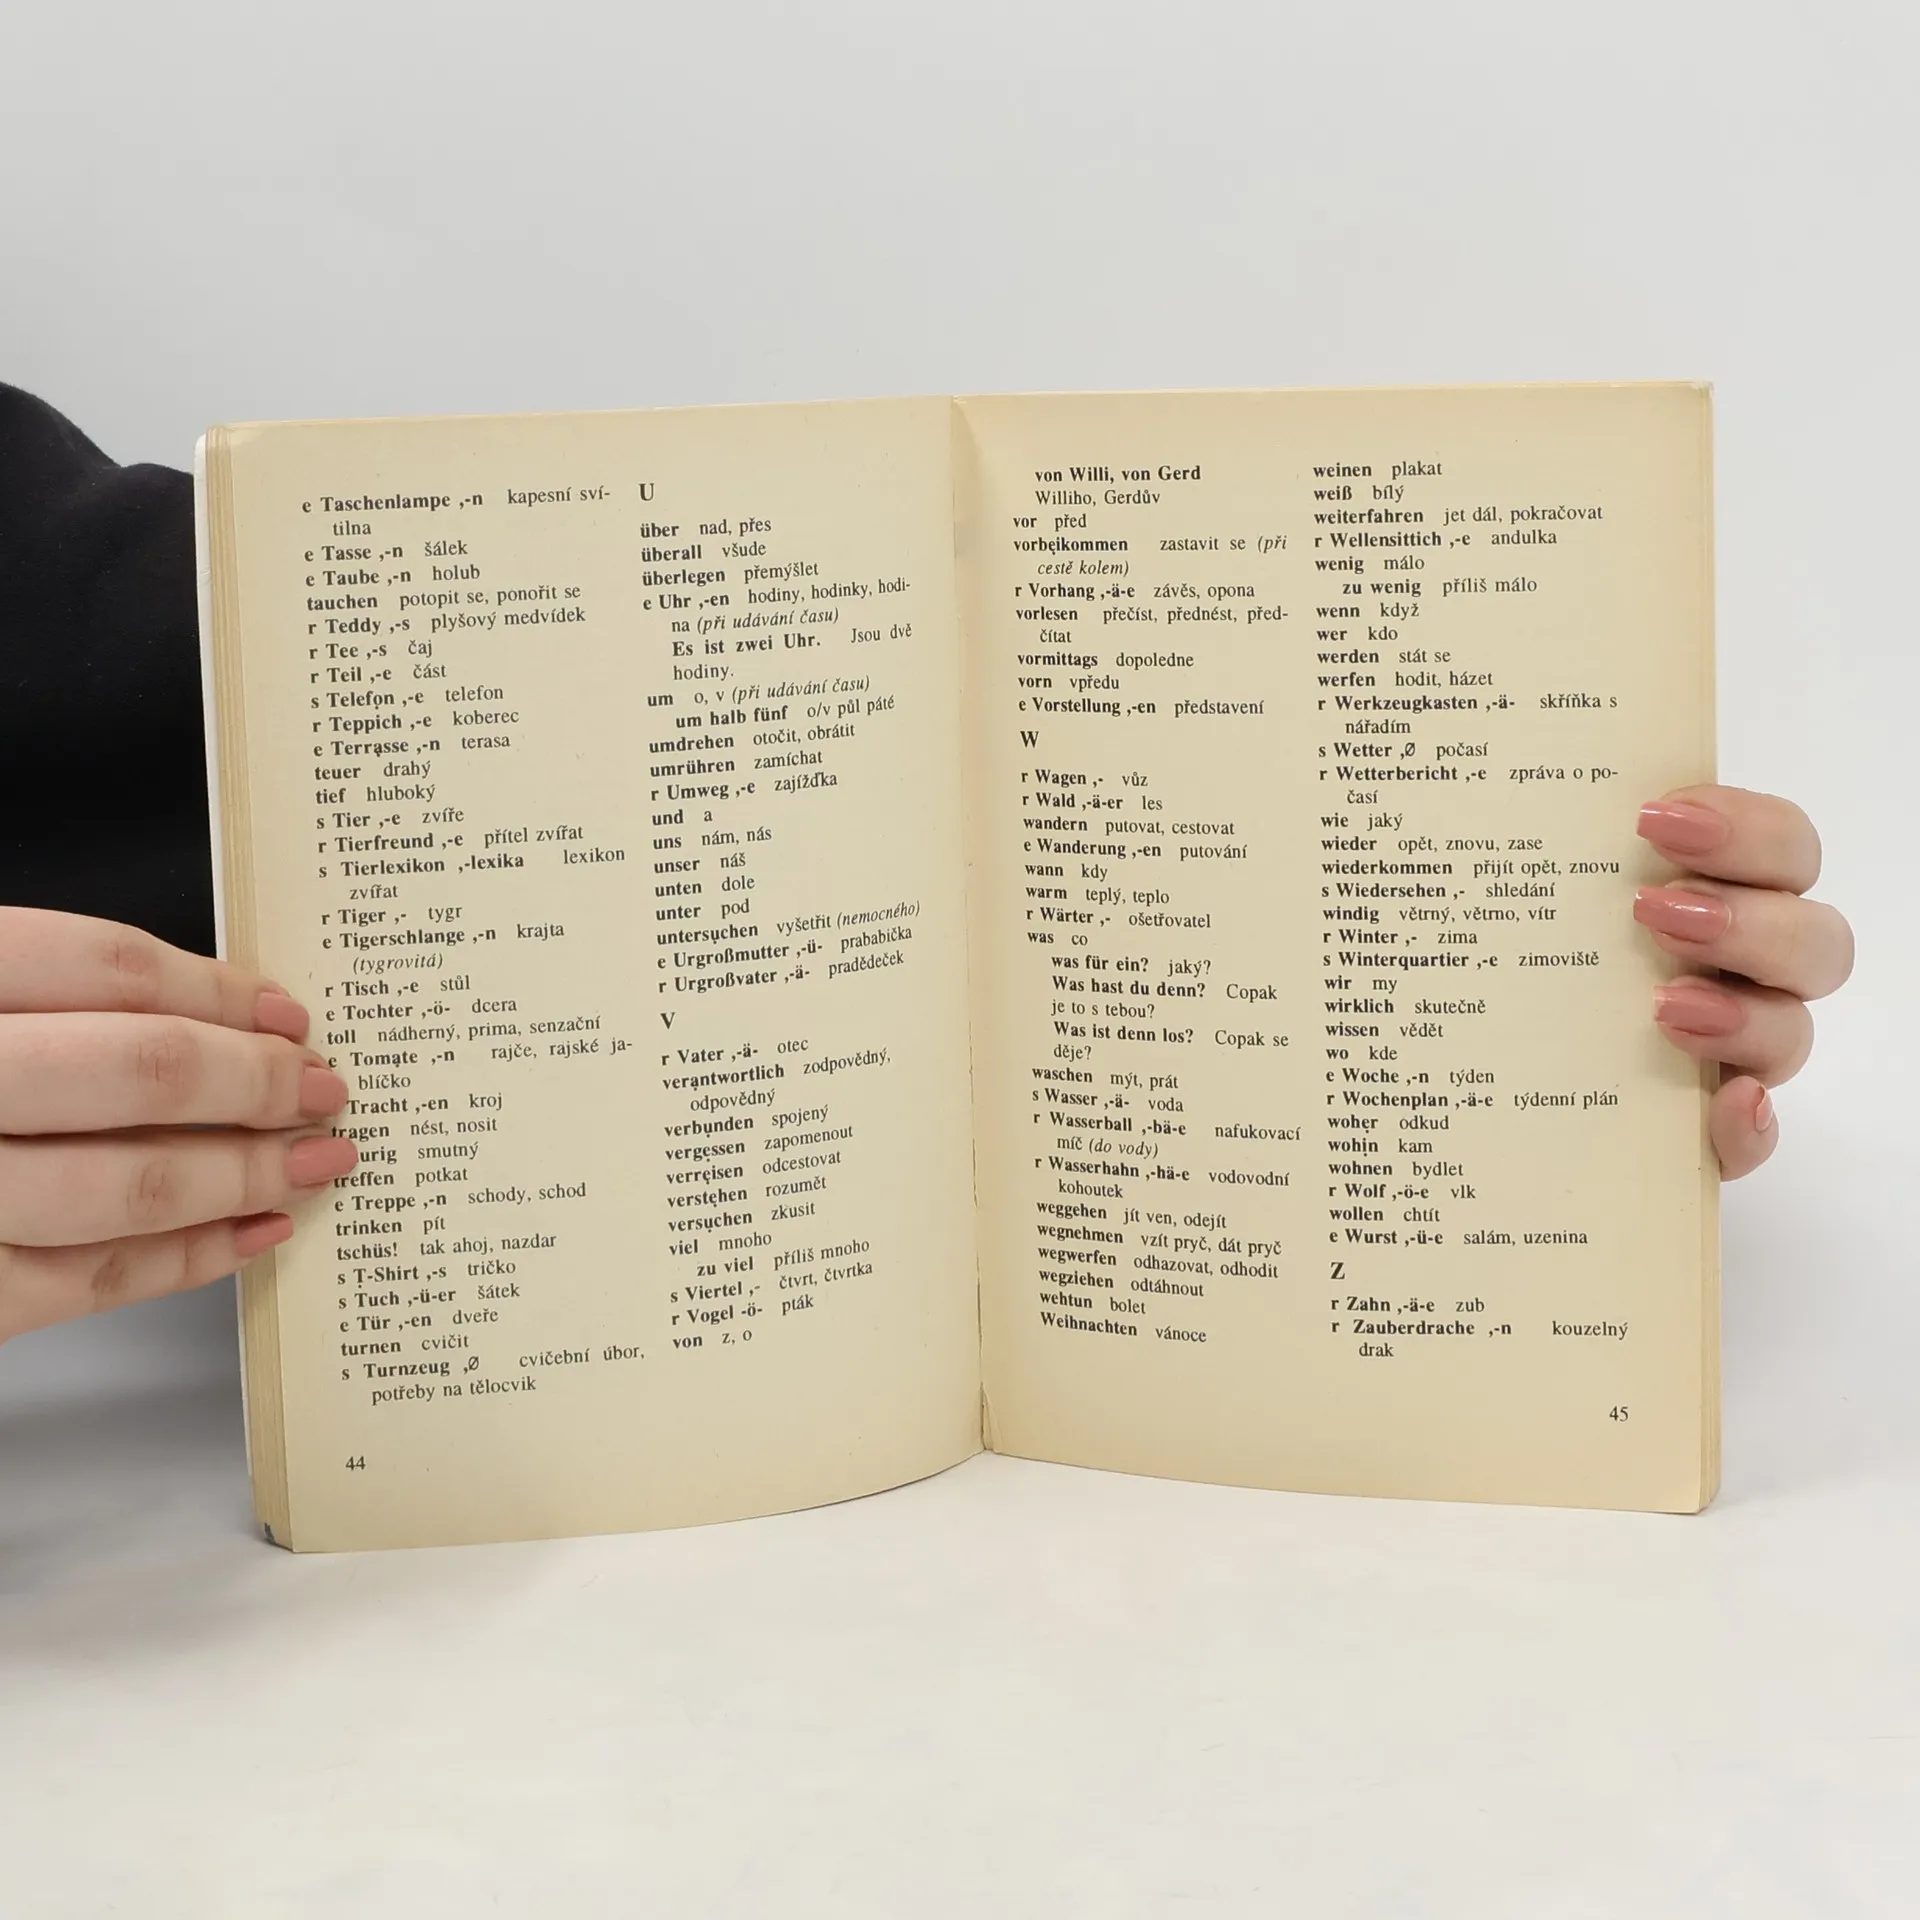 e Taschenlampe ,-n kapesní sví-
tilna
e Tasse ,-n šálek
e Taube ,-n holub
tauchen potopit se, ponořit se
r Teddy ,-s plyšový medvídek
r Tee ,-s čaj
r Teil ,-e část
s Telefọn ,-e telefon
r Teppich ,-e koberec
e Terrạsse ,-n terasa
teuer drahý
tief hluboký
s Tier ,-e zvíře
r Tierfreund ,-e přítel zvířat
s Tierlexikon ,-lexika lexikon
zvířat
r Tiger ,- tygr
e Tigerschlange ,-n krajta
(tygrovitá)
r Tisch ,-e stůl
e Tochter ,-ö- dcera
toll nádherný, prima, senzační
e Tomạte ,-n rajče, rajské ja-
blíčko
Tracht ,-en kroj
tragen nést, nosit
urig smutný
treffen potkat
e Treppe ,-n schody, schod
trinken pít
tschüs! tak ahoj, nazdar
s Ṭ-Shirt ,-s tričko
s Tuch ,-ü-er šátek
e Tür ,-en dveře
turnen cvičit
s Turnzeug ,Ø cvičební úbor,
potřeby na tělocvik
44
U
über nad, přes
überall všude
überlegen přemýšlet
e Uhr ,-en hodiny, hodinky, hodi-
na (při udávání času)
Es ist zwei Uhr. Jsou dvě
hodiny.
um o, v (při udávání času)
um halb fünf o/v půl páté
umdrehen otočit, obrátit
umrühren zamíchat
r Umweg ,-e zajížďka
und a
uns nám, nás
unser náš
unten dole
unter pod
untersụchen vyšetřit (nemocného)
e Urgroßmutter ,-ü- prababička
r Urgroßvater ,-ä- pradědeček
V
r Vater ,-ä- otec
verạntwortlich zodpovědný,
odpovědný
verbụnden spojený
vergẹssen zapomenout
verrẹisen odcestovat
verstẹhen rozumět
versụchen zkusit
viel mnoho
zu viel příliš mnoho
s Viertel ,- čtvrt, čtvrtka
r Vogel -ö- pták
von z, o
von Willi, von Gerd
Williho, Gerdův
vor před
vorbẹikommen zastavit se (při
cestě kolem)
r Vorhang ,-ä-e závěs, opona
vorlesen přečíst, přednést, před-
čítat
vormittags dopoledne
vorn vpředu
e Vorstellung ,-en představení
W
r Wagen ,- vůz
r Wald ,-ä-er les
wandern putovat, cestovat
e Wanderung ,-en putování
wann kdy
warm teplý, teplo
r Wärter ,- ošetřovatel
was co
was für ein? jaký?
Was hast du denn? Copak
je to s tebou?
Was ist denn los? Copak se
děje?
waschen mýt, prát
s Wasser ,-ä- voda
r Wasserball ,-bä-e nafukovací
míč (do vody)
r Wasserhahn ,-hä-e vodovodní
kohoutek
weggehen jít ven, odejít
wegnehmen vzít pryč, dát pryč
wegwerfen odhazovat, odhodit
wegziehen odtáhnout
wehtun bolet
Weihnachten vánoce
weinen plakat
weiß bílý
weiterfahren jet dál, pokračovat
r Wellensittich ,-e andulka
wenig málo
zu wenig příliš málo
wenn když
wer kdo
werden stát se
werfen hodit, házet
r Werkzeugkasten ,-ä- skříňka s
nářadím
s Wetter ,Ø počasí
r Wetterbericht ,-e zpráva o po-
časí
wie jaký
wieder opět, znovu, zase
wiederkommen přijít opět, znovu
s Wiedersehen ,- shledání
windig větrný, větrno, vítr
r Winter ,- zima
s Winterquartier ,-e zimoviště
wir my
wirklich skutečně
wissen vědět
wo kde
e Woche ,-n týden
r Wochenplan ,-ä-e týdenní plán
wohẹr odkud
wohịn kam
wohnen bydlet
r Wolf ,-ö-e vlk
wollen chtít
e Wurst ,-ü-e salám, uzenina
Z
r Zahn ,-ä-e zub
r Zauberdrache ,-n kouzelný
drak
45